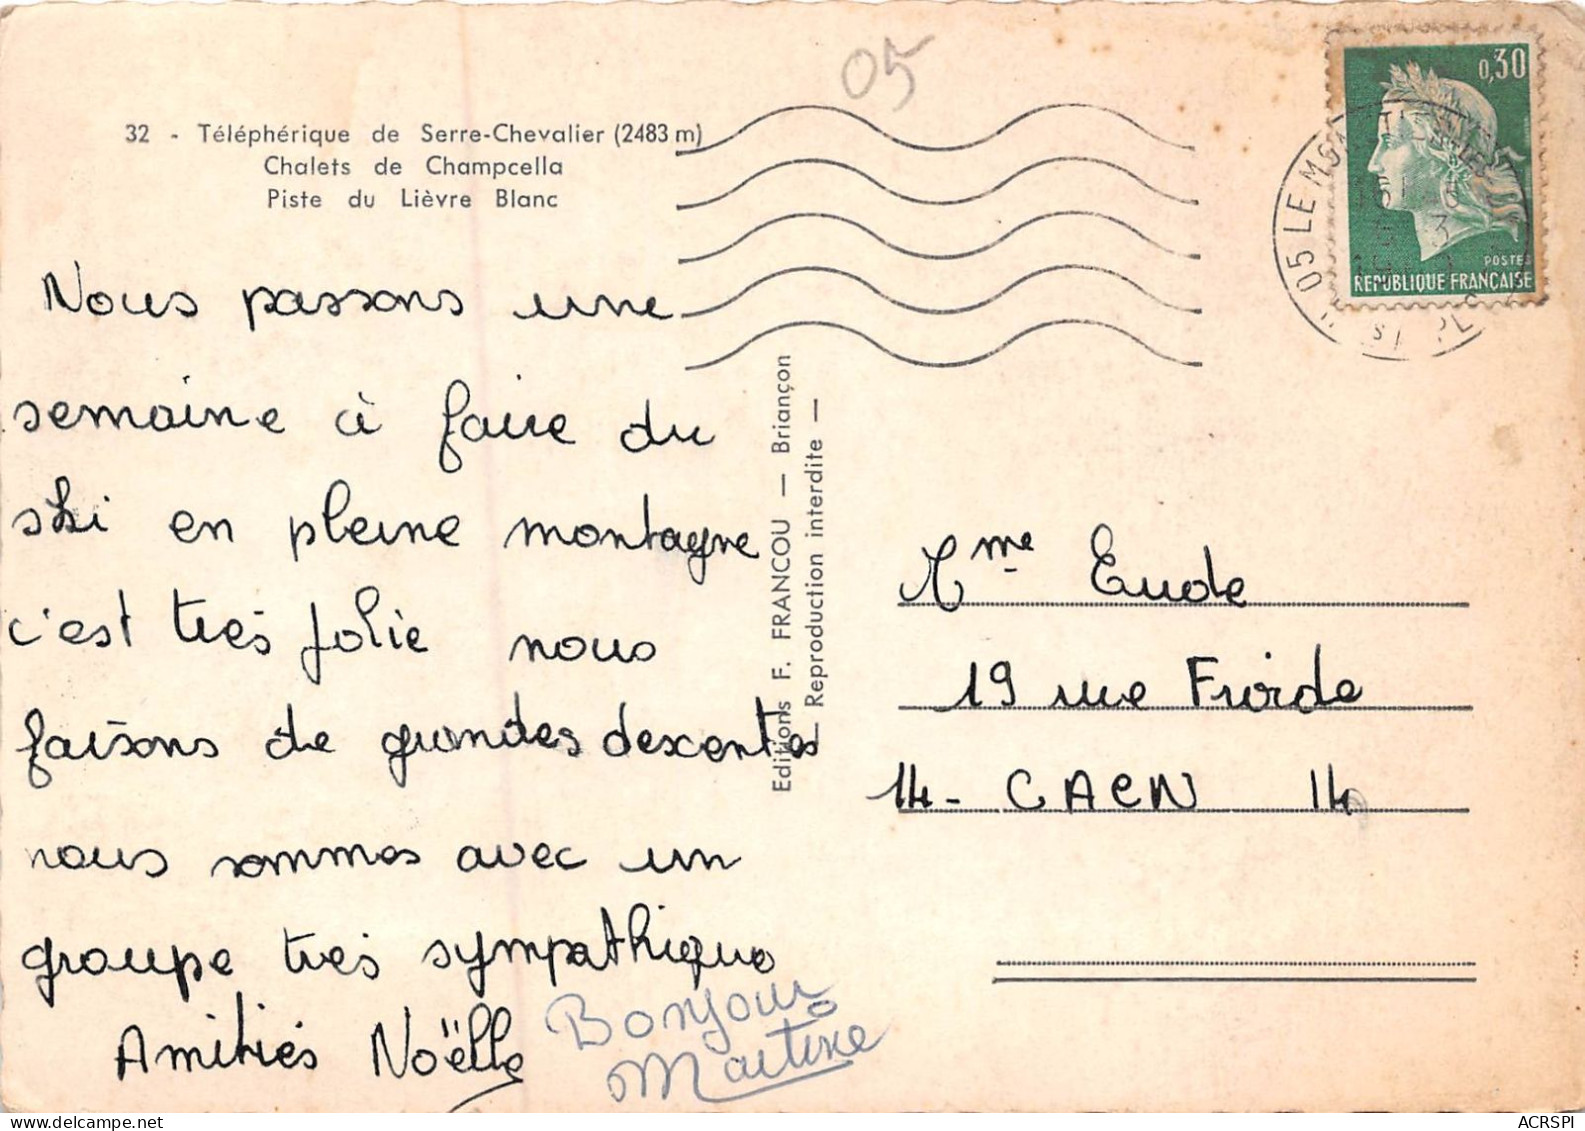 05
32 - Téléphérique de Serre-Chevalier (2483 m)
Chalets de Champcella
Piste du Lièvre Blanc
Nous passons une
semaine à faire du
ski en pleine montagne
c'est très jolie nous
faisons de grandes descentes
nous sommes avec un
groupe très sympathique
Amitiés Noëlle
Bonjour
Martine
Editions F. FRANCOU — Briançon
— Reproduction interdite —
0,30
POSTES
REPUBLIQUE FRANÇAISE
05 LE
Mme Eude
19 rue Froide
14 - CAEN 14
ACRSPI